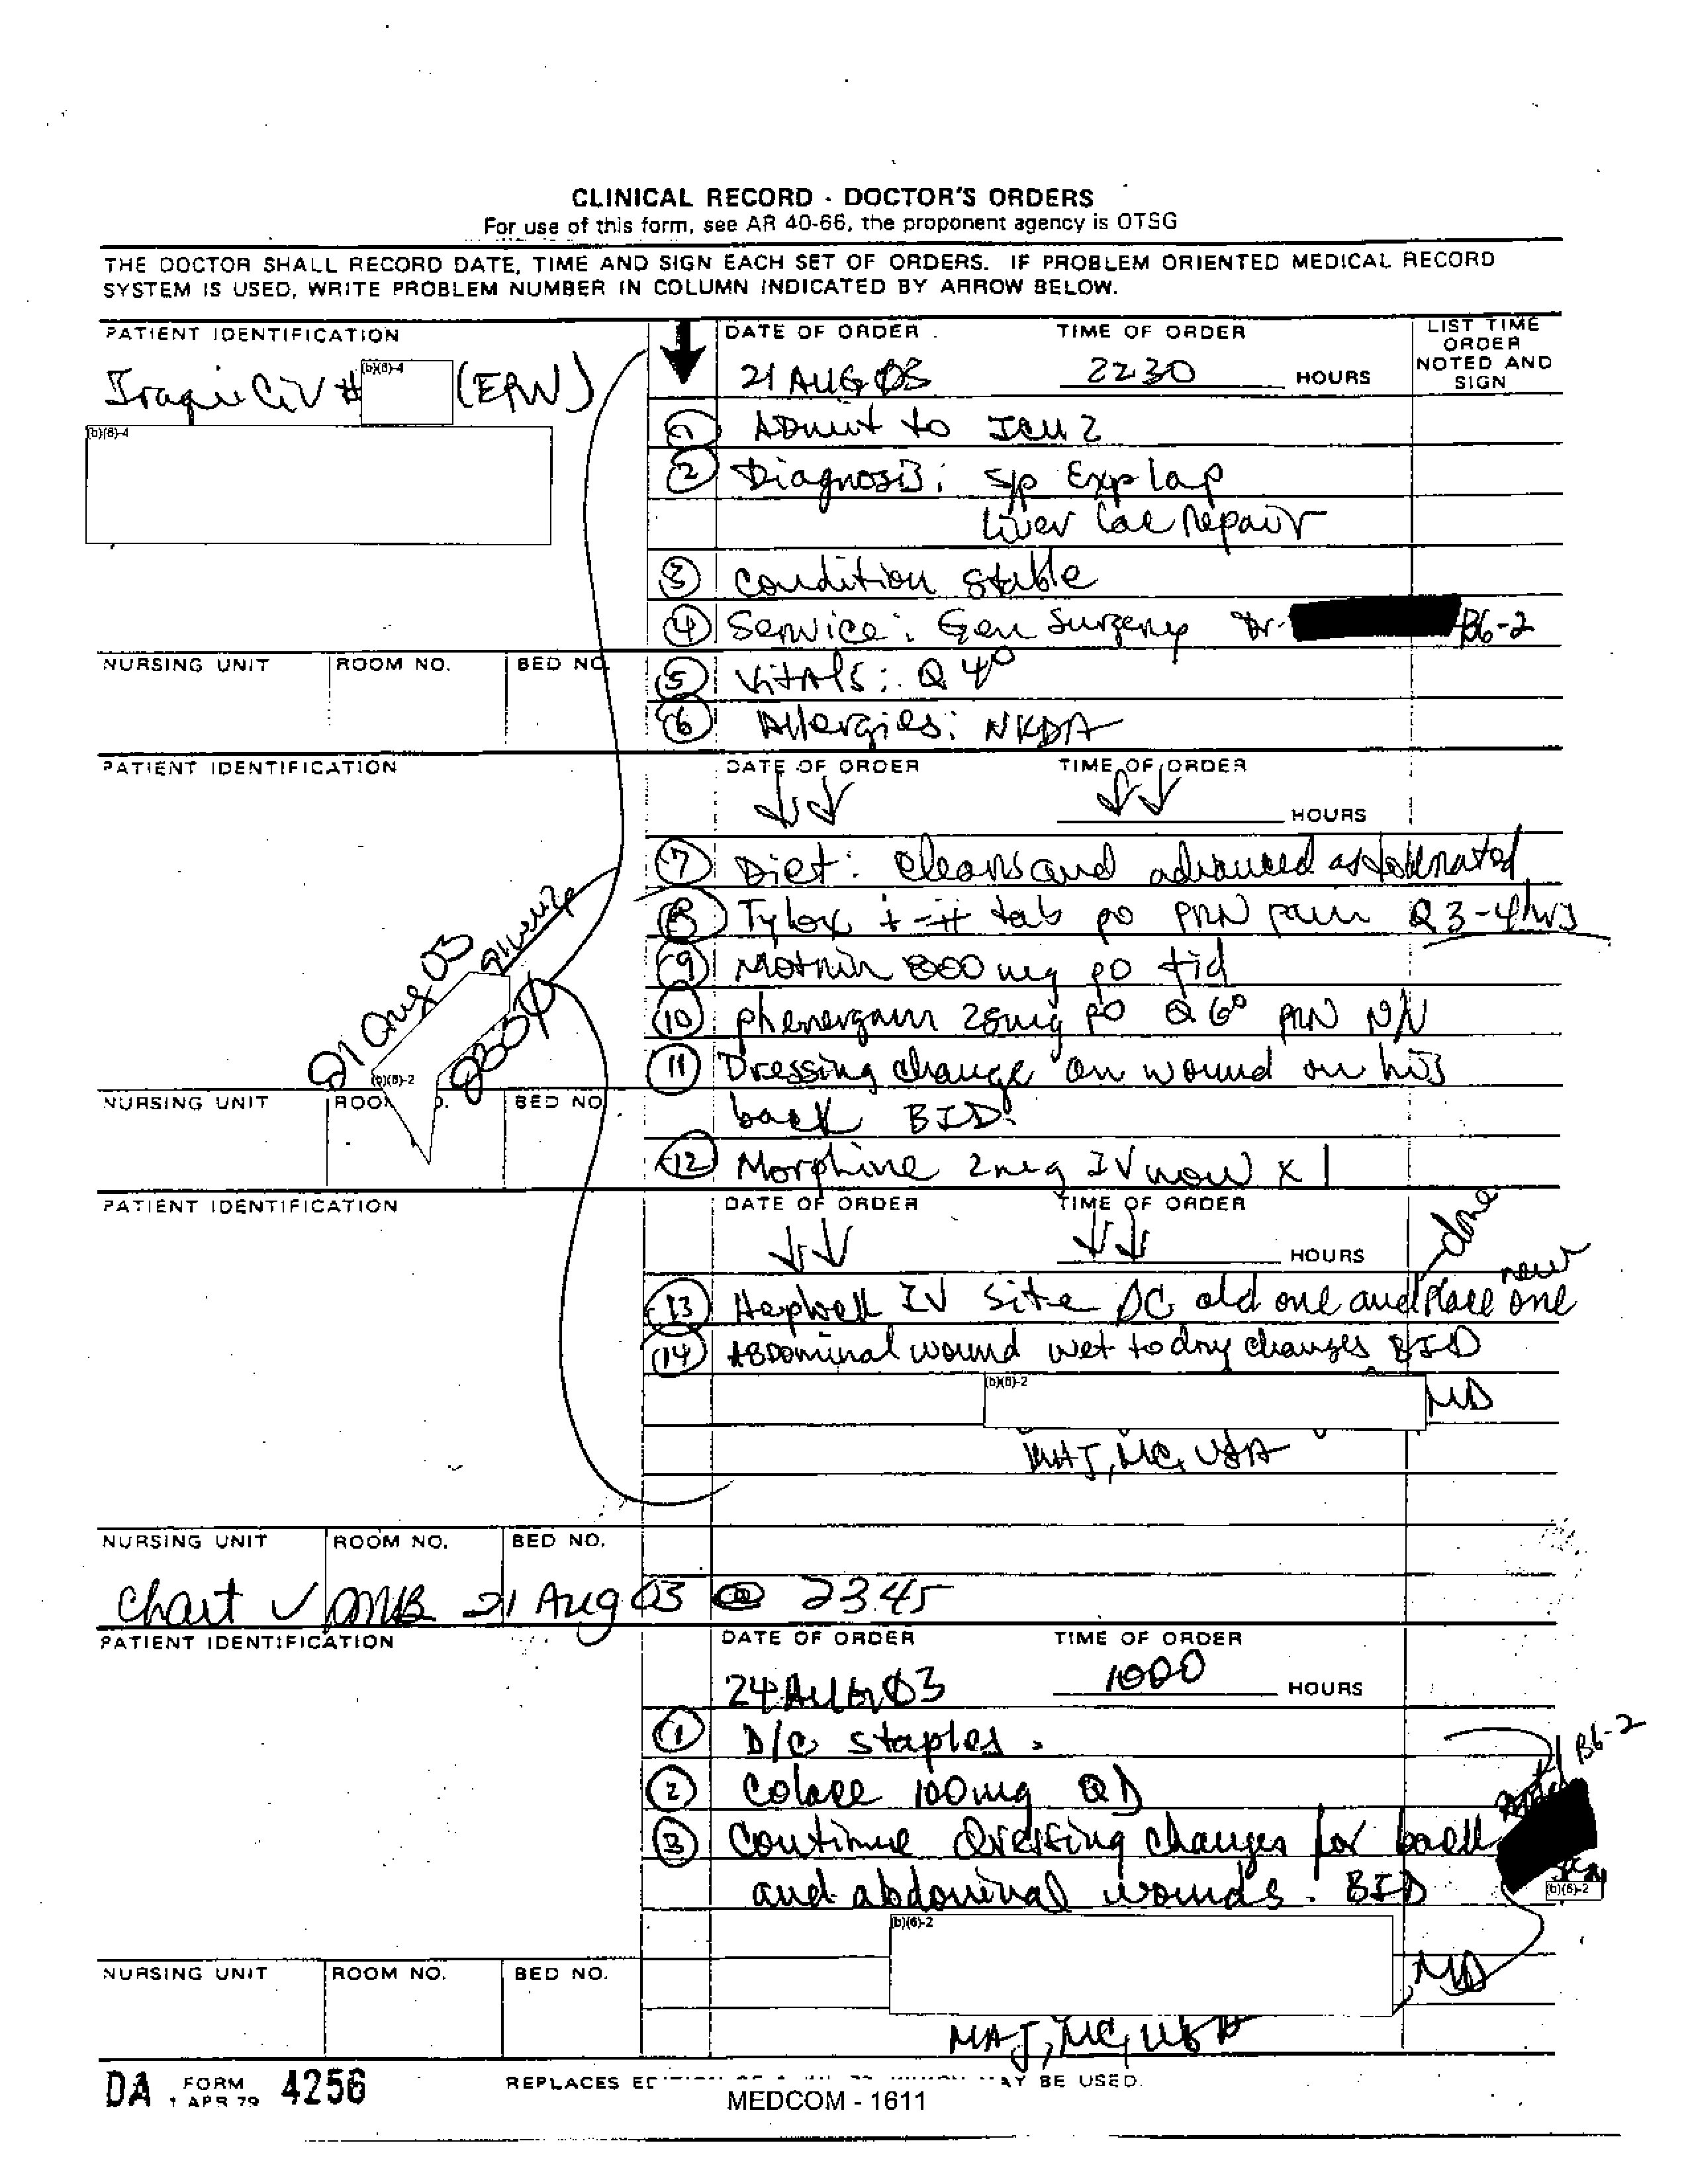 CLINICAL RECORD - DOCTOR'S ORDERS
For use of this form, see AR 40-66, the proponent agency is OTSG
THE DOCTOR SHALL RECORD DATE, TIME AND SIGN EACH SET OF ORDERS. IF PROBLEM ORIENTED MEDICAL RECORD
SYSTEM IS USED, WRITE PROBLEM NUMBER IN COLUMN INDICATED BY ARROW BELOW.
PATIENT IDENTIFICATION
Iraqi Civ # (b)(6)-4 (EPW)
(b)(6)-4
DATE OF ORDER TIME OF ORDER LIST TIME ORDER NOTED AND SIGN
21 AUG 03 2230 HOURS
1 Admit to ICU 2
2 Diagnosis: s/p Exp lap
liver lac repair
3 Condition stable
4 Service: Gen Surgery Dr. B6-2
5 Vitals: Q 4°
6 Allergies: NKDA
NURSING UNIT ROOM NO. BED NO.
PATIENT IDENTIFICATION
DATE OF ORDER TIME OF ORDER
HOURS
7 Diet: clears and advanced as tolerated
8 Tylox i-ii tab po PRN pain Q 3-4 hrs
9 Motrin 800 mg po tid
10 phenergan 25mg po Q 6° PRN N/V
11 Dressing change on wound on his
back BID
12 Morphine 2mg IV now x 1
21 Aug 03
(b)(6)-2
NURSING UNIT ROOM NO. BED NO
PATIENT IDENTIFICATION
DATE OF ORDER TIME OF ORDER
HOURS
done
13 Heplock IV site DC old one and place new one
14 Abdominal wound wet to dry changes BID
(b)(6)-2 MD
MAJ, MC, USA
NURSING UNIT ROOM NO. BED NO.
Chart ✓ 21 Aug 03 @ 2345
PATIENT IDENTIFICATION
DATE OF ORDER TIME OF ORDER
24 AUG 03 1000 HOURS
1 D/C staples.
2 Colace 100mg QD
3 Continue dressing changes for back
and abdominal wounds. BID
B6-2
(b)(6)-2
(b)(6)-2
MD
MAJ, MC, USA
NURSING UNIT ROOM NO. BED NO.
DA FORM 1 APR 79 4256
REPLACES AY BE USED.
MEDCOM - 1611